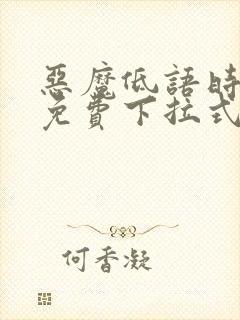 惡魔低語時
免費下拉式
何香凝